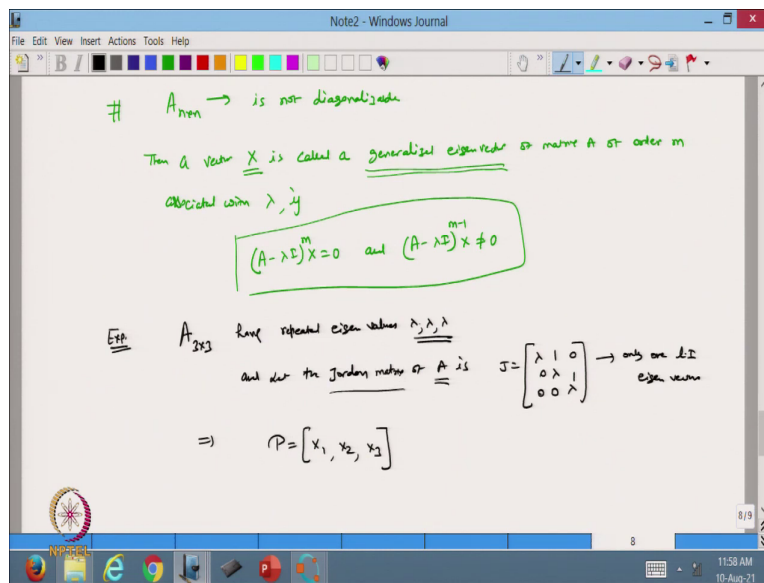 Note2 - Windows Journal
File Edit View Insert Actions Tools Help
# A_{n×n} → is not diagonalizable
Then a vector X is called a generalised eigenvector of matrix A of order m
associated with λ, if
(A-λI)^m X = 0 and (A-λI)^{m-1} X ≠ 0
Exp. A_{3×3} have repeated eigen values λ, λ, λ
and let the Jordan matrix of A is J = [λ 1 0
0 λ 1
0 0 λ] → only one L.I
eigen vector
⇒ P = [X_1, X_2, X_3]
8/9
8
NPTEL
11:58 AM
10-Aug-21